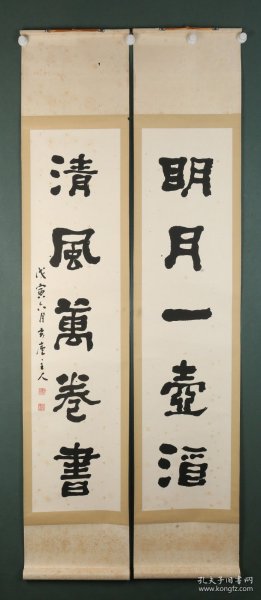 明月一壺酒
清風萬卷書
戊寅六月
主人
孔夫子旧书网
www.kongfz.com